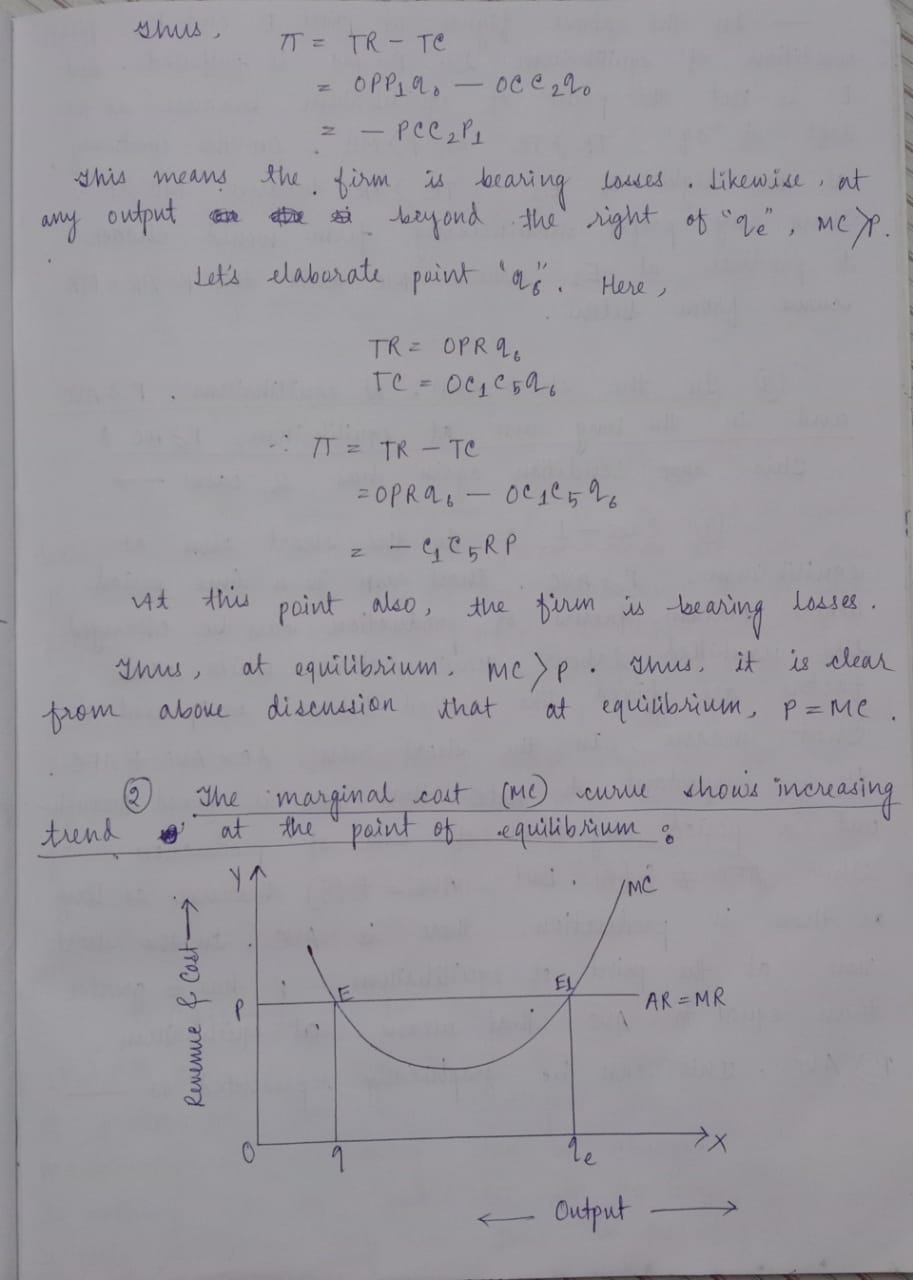 Thus,
π = TR – TC
= OPP₁q₀ – OCC₂q₀
= – PCC₂P₁
This means the firm is bearing losses. Likewise, at
any output beyond the right of "qₑ", MC>P.
Let's elaborate point "q₆". Here,
TR = OPRq₆
TC = OC₁C₅q₆
∴ π = TR – TC
= OPRq₆ – OC₁C₅q₆
= – C₁C₅RP
At this point also, the firm is bearing losses.
Thus, at equilibrium, MC>P. Thus, it is clear
from above discussion that at equilibrium, P = MC.
② The marginal cost (MC) curve shows increasing
trend at the point of equilibrium :
Y
MC
Revenue & Cost →
P
E
E1
AR = MR
O
q
qₑ
X
← Output →